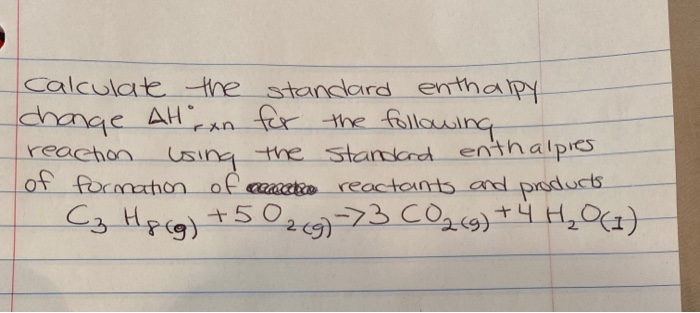 Calculate the standard enthalpy
change ΔH°rxn for the following
reaction using the standard enthalpies
of formation of reactants and products
C₃H₈(g) + 5O₂(g) → 3CO₂(g) + 4H₂O(I)